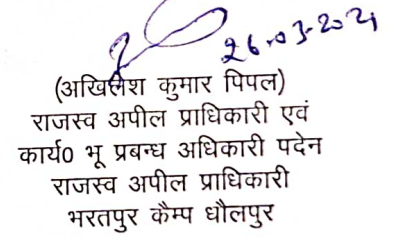 26-03-2021
(अखिलेश कुमार पिपल)
राजस्व अपील प्राधिकारी एवं
कार्य0 भू प्रबन्ध अधिकारी पदेन
राजस्व अपील प्राधिकारी
भरतपुर कैम्प धौलपुर